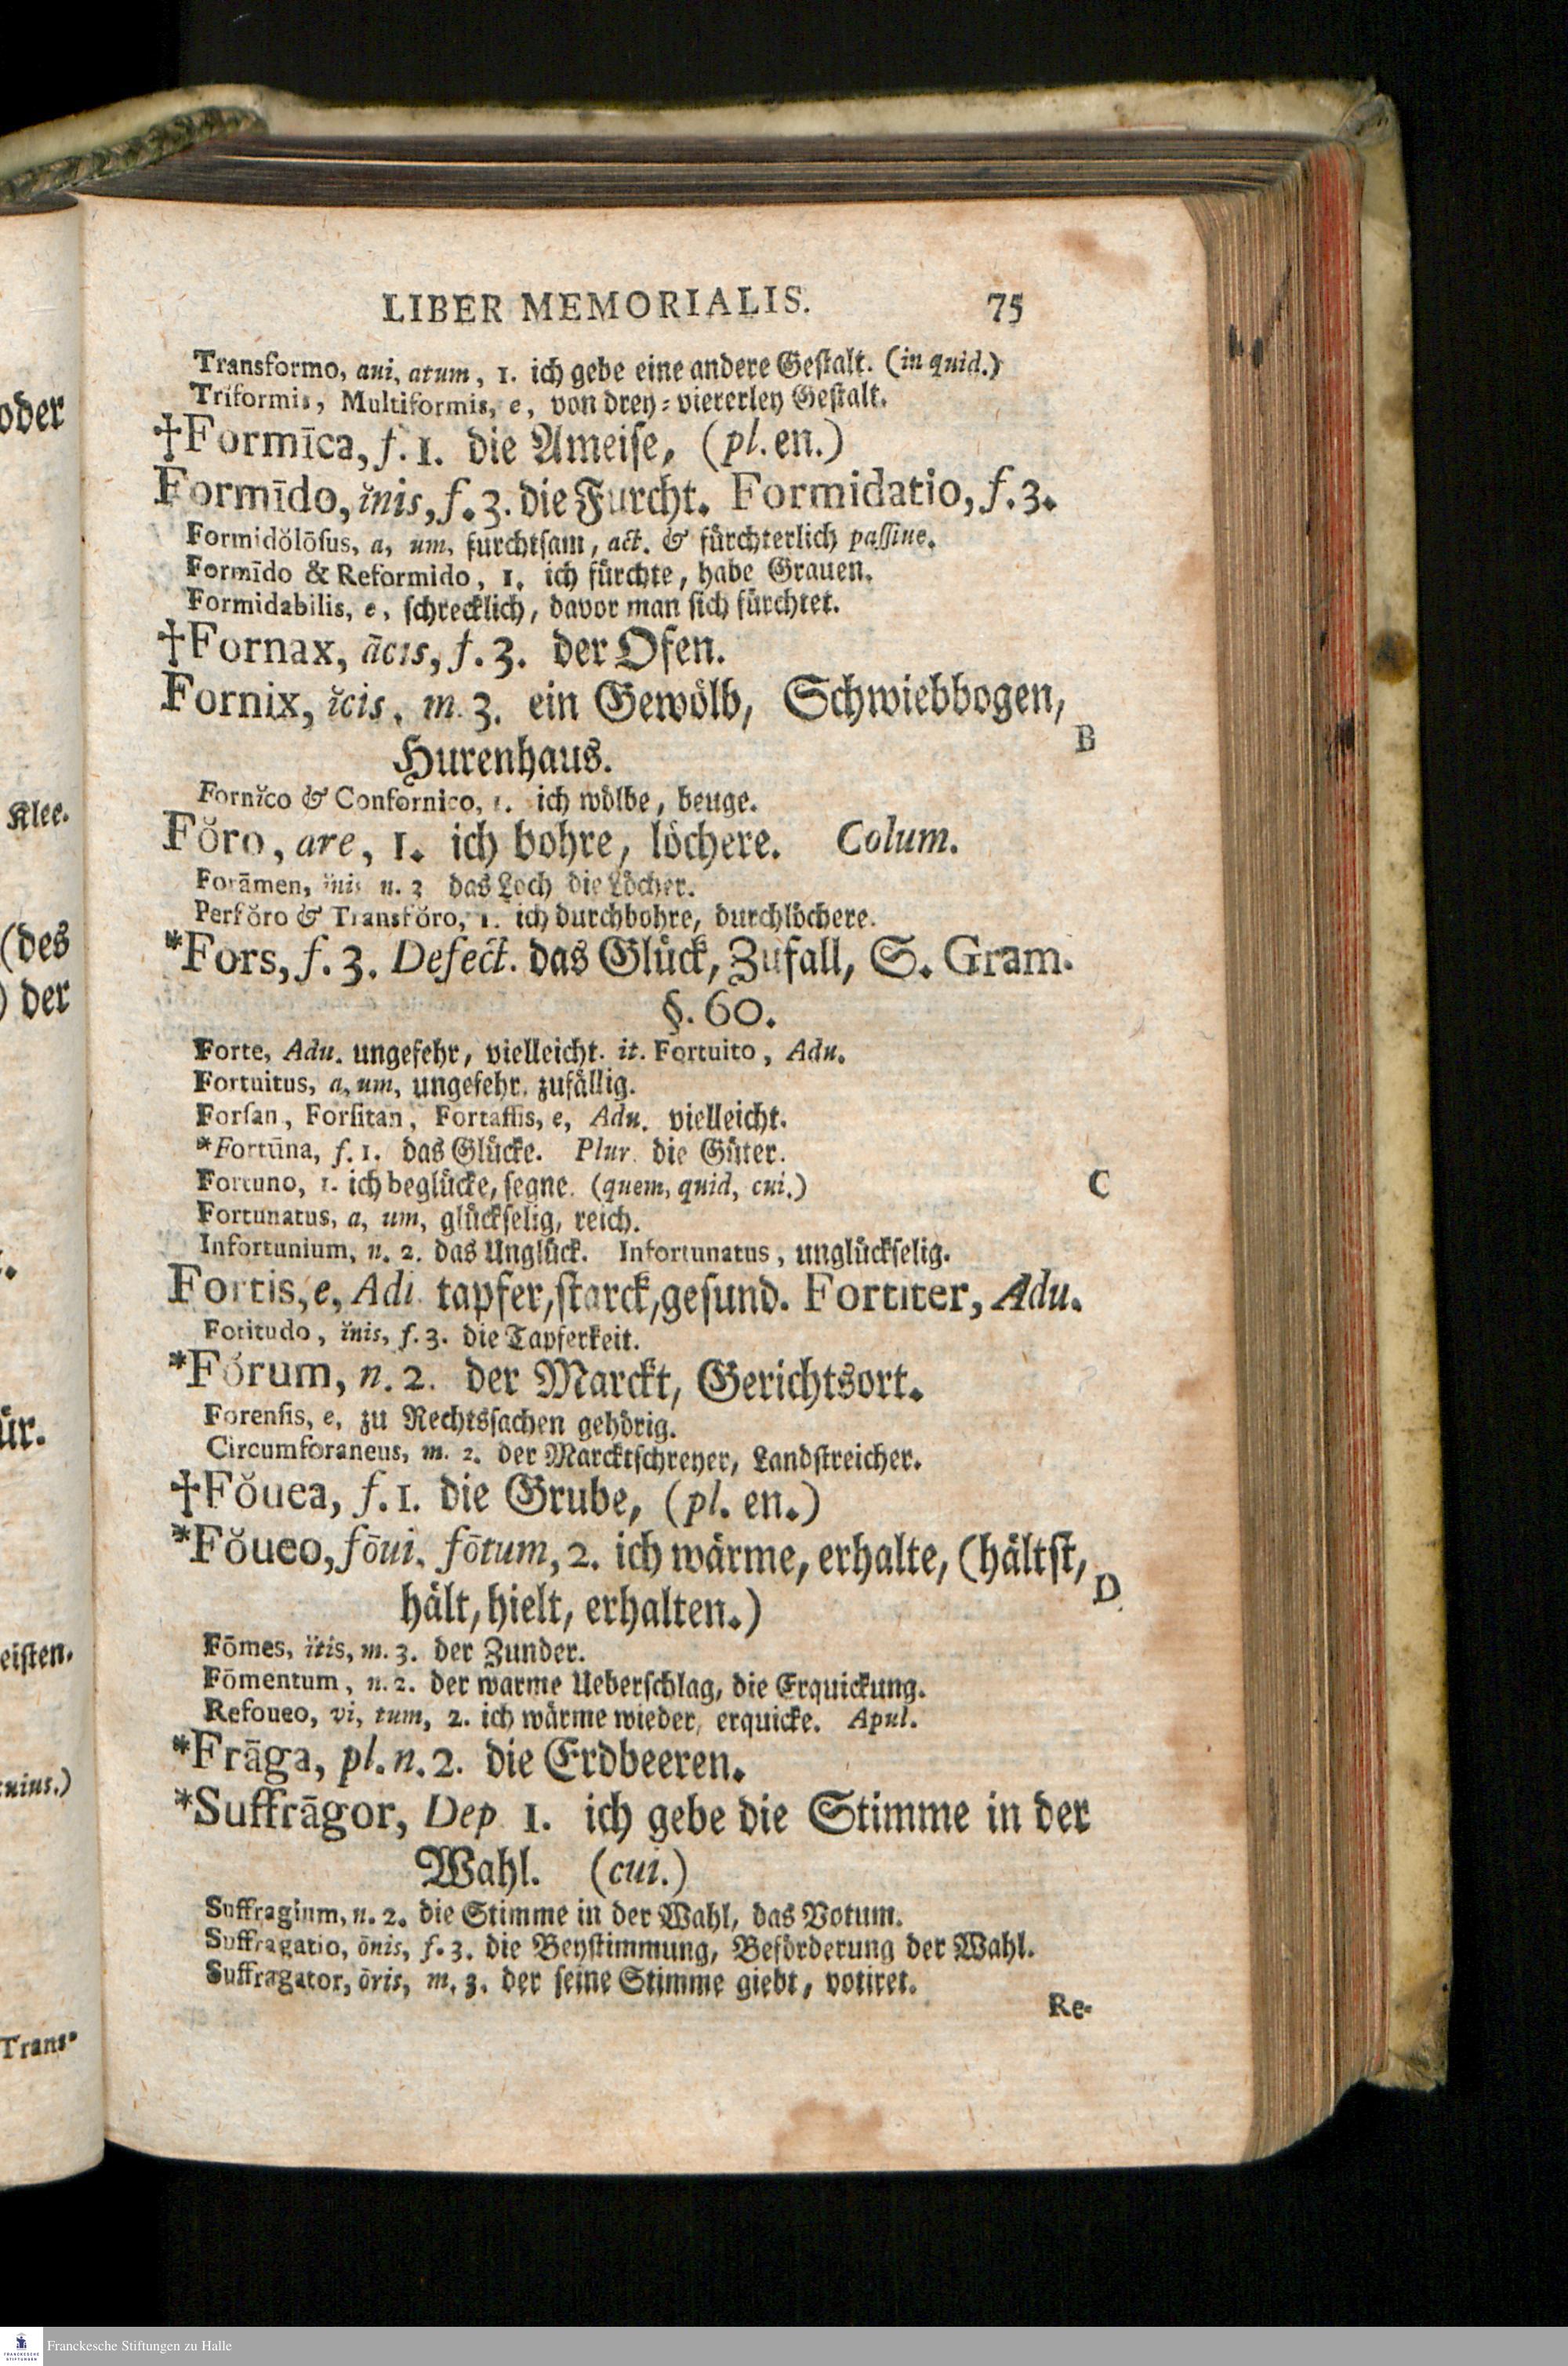 LIBER MEMORIALIS. 75
Transformo, aui, atum, 1. ich gebe eine andere Geſtalt. (in quid.)
Triformis, Multiformis, e, von drey⸗ viererley Geſtalt.
†Formīca, f. 1. die Ameiſe, (pl. en.)
Formīdo, ĭnis, f. 3. die Furcht. Formidatio, f. 3.
Formidŏlōſus, a, um, furchtſam, act. & fürchterlich paſſiue.
Formīdo & Reformido, 1. ich fürchte, habe Grauen.
Formidabilis, e, ſchrecklich, davor man ſich fürchtet.
†Fornax, ācis, f. 3. der Ofen.
Fornix, ĭcis, m. 3. ein Gewölb, Schwiebbogen,
B
Hurenhaus.
Fornĭco & Confornico, 1. ich wölbe, beuge.
Fŏro, are, 1. ich bohre, löchere. Colum.
Forāmen, ĭnis n. 3 das Loch die Löcher.
Perfŏro & Transfŏro, 1. ich durchbohre, durchlöchere.
*Fors, f. 3. Defect. das Glück, Zufall, S. Gram.
§. 60.
Forte, Adu. ungefehr, vielleicht. it. Fortuito, Adu.
Fortuitus, a, um, ungefehr, zufällig.
Forſan, Forſitan, Fortaſſis, e, Adu. vielleicht.
*Fortūna, f. 1. das Glücke. Plur. die Güter.
Fortuno, 1. ich beglücke, ſegne. (quem, quid, cui.) C
Fortunatus, a, um, glückſelig, reich.
Infortunium, n. 2. das Unglück. Infortunatus, unglückſelig.
Fortis, e, Adi. tapfer, ſtarck, geſund. Fortiter, Adu.
Fotitudo, ĭnis, f. 3. die Tapferkeit.
*Fŏrum, n. 2. der Marckt, Gerichtsort.
Forenſis, e, zu Rechtsſachen gehörig.
Circumforaneus, m. 2. der Marcktſchreyer, Landſtreicher.
†Fŏuea, f. 1. die Grube, (pl. en.)
*Fŏueo, fōui, fōtum, 2. ich wärme, erhalte, (hältſt,
D
hält, hielt, erhalten.)
Fōmes, ĭtis, m. 3. der Zunder.
Fōmentum, n. 2. der warme Ueberſchlag, die Erquickung.
Refoueo, vi, tum, 2. ich wärme wieder, erquicke. Apul.
*Frāga, pl. n. 2. die Erdbeeren.
*Suffrāgor, Dep 1. ich gebe die Stimme in der
Wahl. (cui.)
Suffragium, n. 2. die Stimme in der Wahl, das Votum.
Suffragatio, ōnis, f. 3. die Beyſtimmung, Beförderung der Wahl.
Suffragator, ōris, m. 3. der ſeine Stimme giebt, votiret.
Re-
oder
Klee.
(des
) der
ür.
eiſten.
Trans-
Franckesche Stiftungen zu Halle
FRANCKESCHE
STIFTUNGEN